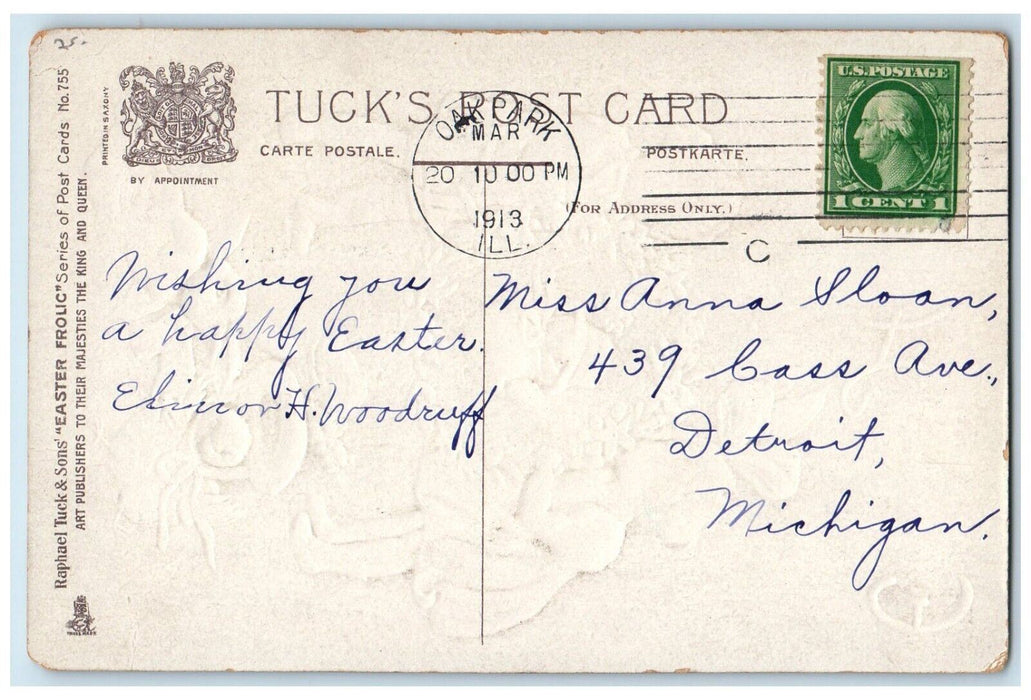 25.
TUCK'S POST CARD
CARTE POSTALE.
POSTKARTE.
(FOR ADDRESS ONLY.)
BY APPOINTMENT
PRINTED IN SAXONY
Raphael Tuck & Sons' "EASTER FROLIC" Series of Post Cards No. 755
ART PUBLISHERS TO THEIR MAJESTIES THE KING AND QUEEN.
TRADE MARK
OAK PARK
MAR
20 10 00 PM
1913
ILL.
C
U.S. POSTAGE
1 CENT 1
Wishing you
a happy Easter.
Elinor H. Woodruff
Miss Anna Sloan,
439 Cass Ave.,
Detroit,
Michigan.